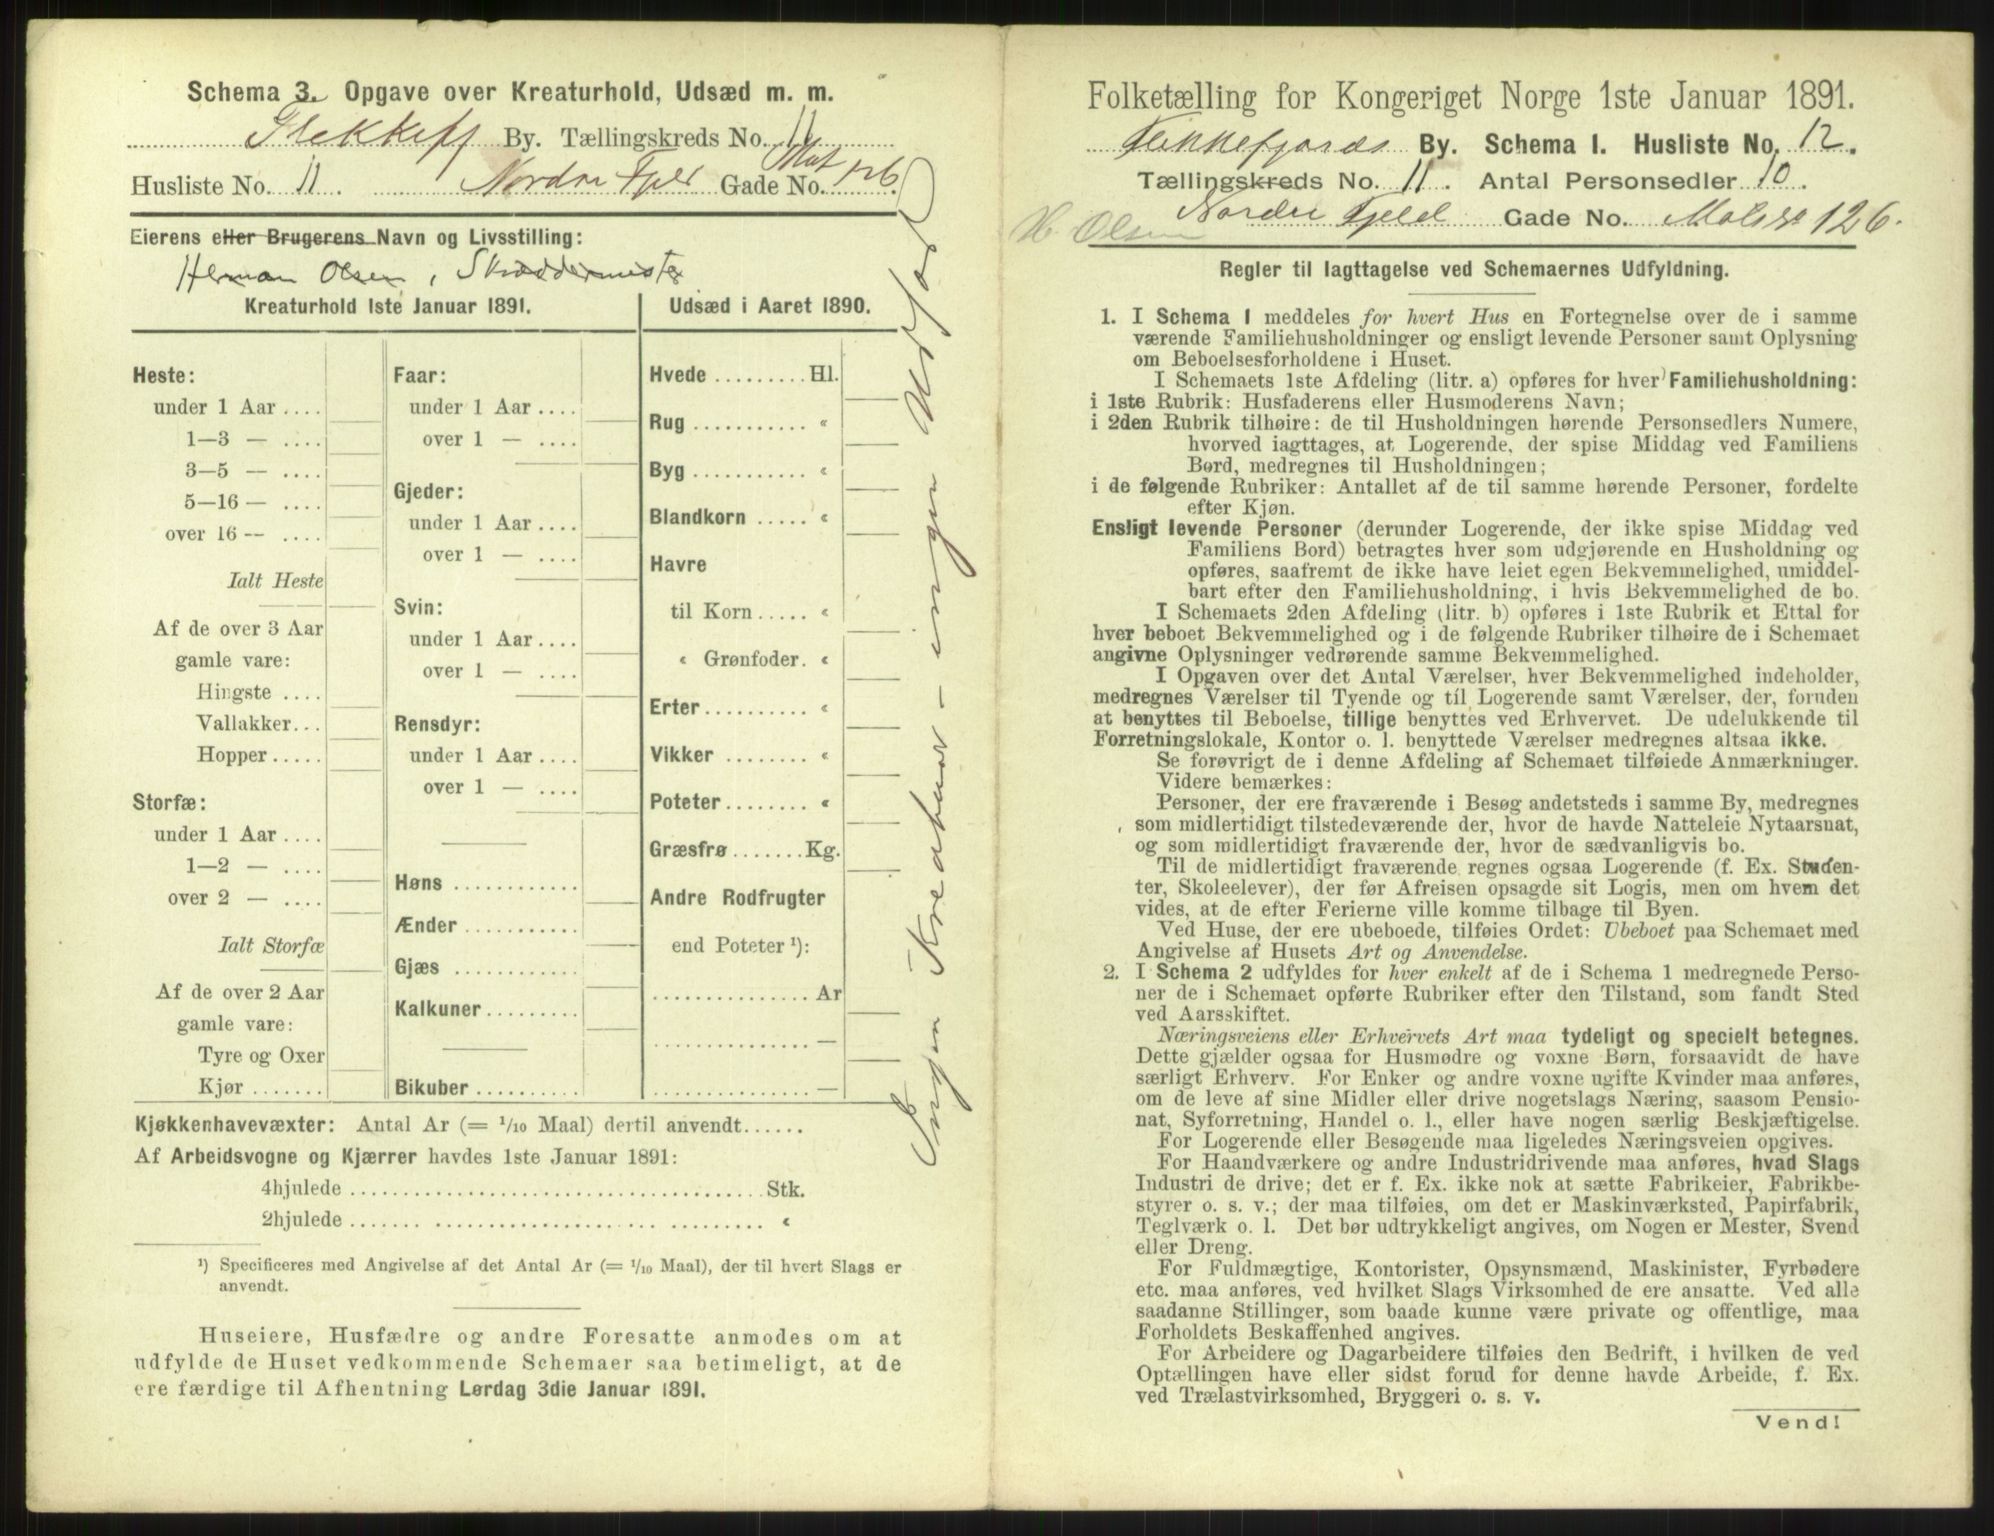 Schema 3. Opgave over Kreaturhold, Udsæd m. m.
Flekkefj By. Tællingskreds No. 11
Husliste No. 11. Nordre Fjeld Gade No. Mat 126
Eierens eller Brugerens Navn og Livsstilling:
Herman Olsen, Skræddermester
Kreaturhold 1ste Januar 1891.
Heste:
under 1 Aar ....
1—3 — ....
3—5 — ....
5—16 — ....
over 16 — ....
Ialt Heste
Af de over 3 Aar
gamle vare:
Hingste ....
Vallakker...
Hopper.....
Storfæ:
under 1 Aar ....
1—2 — ....
over 2 — ....
Ialt Storfæ
Af de over 2 Aar
gamle vare:
Tyre og Oxer
Kjør .......
Faar:
under 1 Aar ....
over 1 — ....
Gjeder:
under 1 Aar ....
over 1 — ....
Svin:
under 1 Aar ....
over 1 — ....
Rensdyr:
under 1 Aar ....
over 1 — ....
Høns ............
Ænder ...........
Gjæs ............
Kalkuner .........
Bikuber ..........
Udsæd i Aaret 1890.
Hvede ......... Hl.
Rug ........... «
Byg ........... «
Blandkorn ..... «
Havre
til Korn ..... «
« Grønfoder. «
Erter .......... «
Vikker ........ «
Poteter ........ «
Græsfrø ....... Kg.
Andre Rodfrugter
end Poteter ¹):
............... Ar
............... —
............... —
Ingen Kreaturer - ingen Udsæd
Kjøkkenhavevæxter: Antal Ar (= 1/10 Maal) dertil anvendt......
Af Arbeidsvogne og Kjærrer havdes 1ste Januar 1891:
4hjulede ........................................ Stk.
2hjulede ........................................ «
¹) Specificeres med Angivelse af det Antal Ar (= 1/10 Maal), der til hvert Slags er
anvendt.
Huseiere, Husfædre og andre Foresatte anmodes om at
udfylde de Huset vedkommende Schemaer saa betimeligt, at de
ere færdige til Afhentning Lørdag 3die Januar 1891.
Folketælling for Kongeriget Norge 1ste Januar 1891.
Flekkefjords By. Schema I. Husliste No. 12.
Tællingskreds No. 11. Antal Personsedler 10.
H. Olsen Nordre Fjeld Gade No. 126.
Regler til Iagttagelse ved Schemaernes Udfyldning.
1. I Schema 1 meddeles for hvert Hus en Fortegnelse over de i samme
værende Familiehusholdninger og ensligt levende Personer samt Oplysning
om Beboelsesforholdene i Huset.
I Schemaets 1ste Afdeling (litr. a) opføres for hver Familiehusholdning:
i 1ste Rubrik: Husfaderens eller Husmoderens Navn;
i 2den Rubrik tilhøire: de til Husholdningen hørende Personsedlers Numere,
hvorved iagttages, at Logerende, der spise Middag ved Familiens
Bord, medregnes til Husholdningen;
i de følgende Rubriker: Antallet af de til samme hørende Personer, fordelte
efter Kjøn.
Ensligt levende Personer (derunder Logerende, der ikke spise Middag ved
Familiens Bord) betragtes hver som udgjørende en Husholdning og
opføres, saafremt de ikke have leiet egen Bekvemmelighed, umiddel-
bart efter den Familiehusholdning, i hvis Bekvemmelighed de bo.
I Schemaets 2den Afdeling (litr. b) opføres i 1ste Rubrik et Ettal for
hver beboet Bekvemmelighed og i de følgende Rubriker tilhøire de i Schemaet
angivne Oplysninger vedrørende samme Bekvemmelighed.
I Opgaven over det Antal Værelser, hver Bekvemmelighed indeholder,
medregnes Værelser til Tyende og til Logerende samt Værelser, der, foruden
at benyttes til Beboelse, tillige benyttes ved Erhvervet. De udelukkende til
Forretningslokale, Kontor o. l. benyttede Værelser medregnes altsaa ikke.
Se forøvrigt de i denne Afdeling af Schemaet tilføiede Anmærkninger.
Videre bemærkes:
Personer, der ere fraværende i Besøg andetsteds i samme By, medregnes
som midlertidigt tilstedeværende der, hvor de havde Natteleie Nytaarsnat,
og som midlertidigt fraværende der, hvor de sædvanligvis bo.
Til de midlertidigt fraværende regnes ogsaa Logerende (f. Ex. Studen-
ter, Skoleelever), der før Afreisen opsagde sit Logis, men om hvem det
vides, at de efter Ferierne ville komme tilbage til Byen.
Ved Huse, der ere ubeboede, tilføies Ordet: Ubeboet paa Schemaet med
Angivelse af Husets Art og Anvendelse.
2. I Schema 2 udfyldes for hver enkelt af de i Schema 1 medregnede Perso-
ner de i Schemaet opførte Rubriker efter den Tilstand, som fandt Sted
ved Aarsskiftet.
Næringsveiens eller Erhvervets Art maa tydeligt og specielt betegnes.
Dette gjælder ogsaa for Husmødre og voxne Børn, forsaavidt de have
særligt Erhverv. For Enker og andre voxne ugifte Kvinder maa anføres,
om de leve af sine Midler eller drive nogetslags Næring, saasom Pensio-
nat, Syforretning, Handel o. l., eller have nogen særlig Beskjæftigelse.
For Logerende eller Besøgende maa ligeledes Næringsveien opgives.
For Haandværkere og andre Industridrivende maa anføres, hvad Slags
Industri de drive; det er f. Ex. ikke nok at sætte Fabrikeier, Fabrikbe-
styrer o. s. v.; der maa tilføies, om det er Maskinværksted, Papirfabrik,
Teglværk o. l. Det bør udtrykkeligt angives, om Nogen er Mester, Svend
eller Dreng.
For Fuldmægtige, Kontorister, Opsynsmænd, Maskinister, Fyrbødere
etc. maa anføres, ved hvilket Slags Virksomhed de ere ansatte. Ved alle
saadanne Stillinger, som baade kunne være private og offentlige, maa
Forholdets Beskaffenhed angives.
For Arbeidere og Dagarbeidere tilføies den Bedrift, i hvilken de ved
Optællingen have eller sidst forud for denne havde Arbeide, f. Ex.
ved Trælastvirksomhed, Bryggeri o. s. v.
Vend!